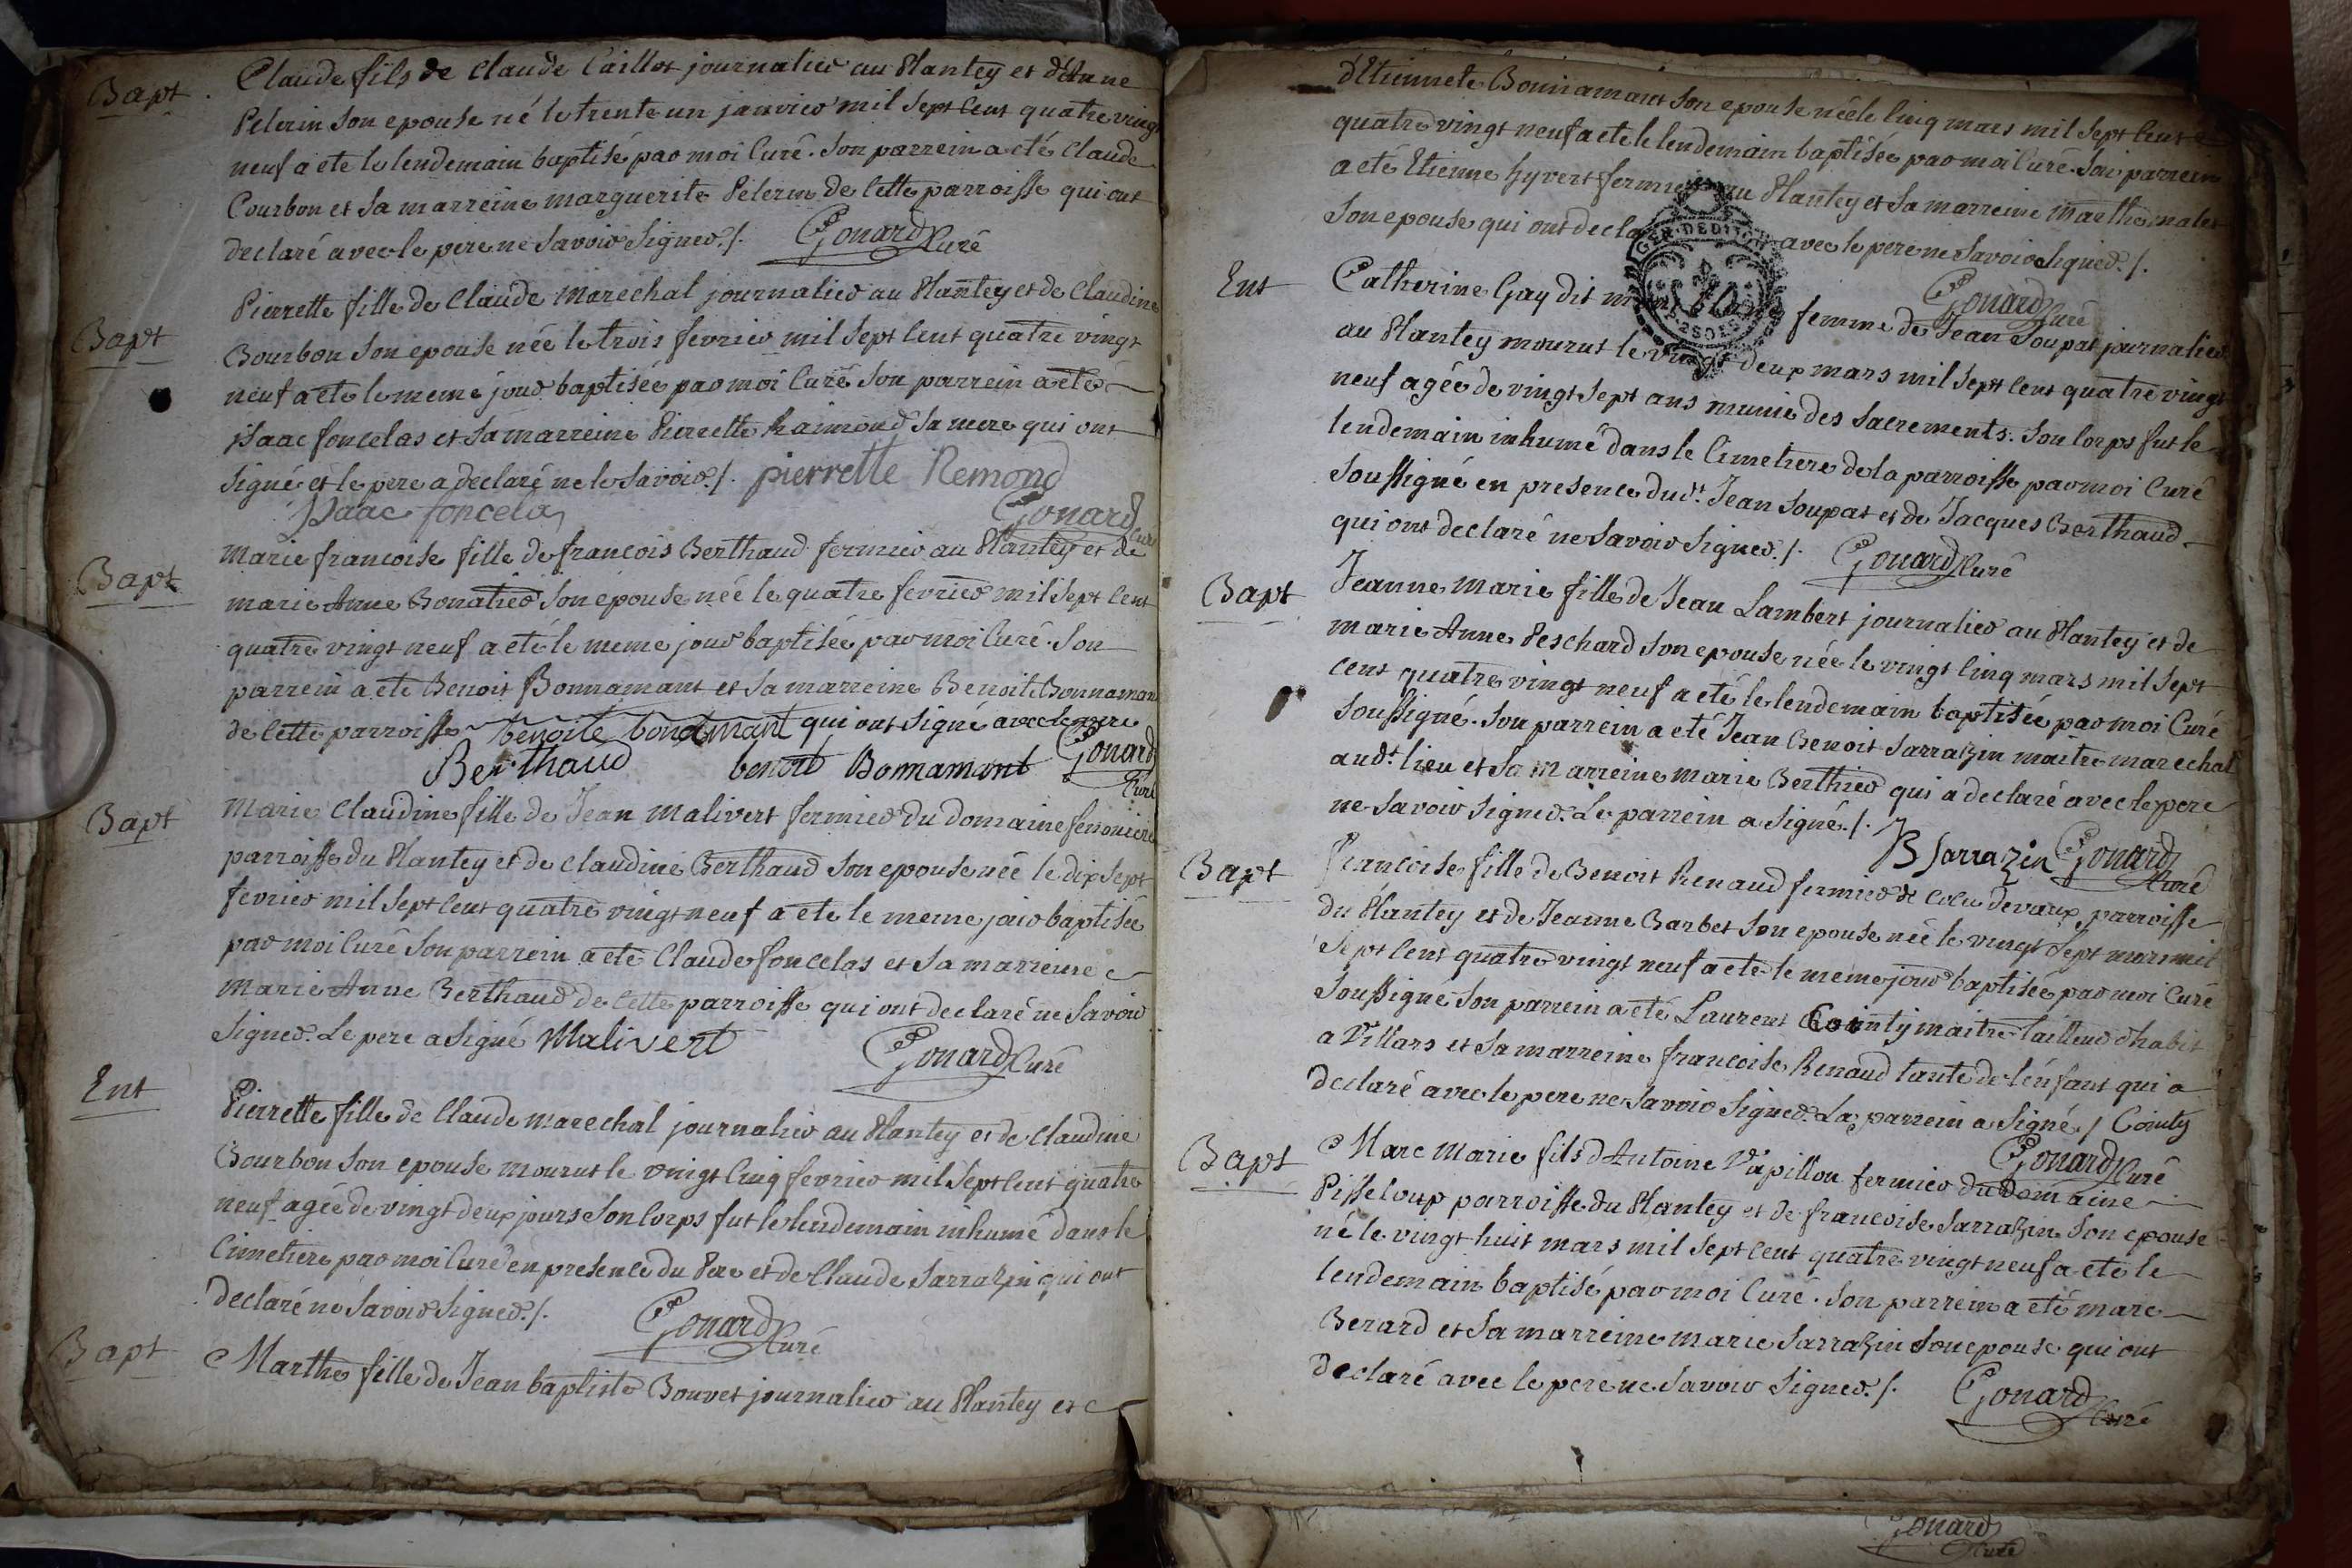 Bapt
Claude fils de Claude Caillot journalier au Plantey et d'Anne
Pelerin son epouse né le trente un janvier mil sept cent quatre vingt
neuf a eté le lendemain baptisé par moi Curé. Son parrein a eté Claude
Courbon et sa marreine marguerite Pelerin de cette parroisse qui ont
declaré avec le pere ne savoir signer./. Gonard Curé
Bapt
Pierrette fille de Claude marechal journalier au Plantey et de Claudine
Bourbon son epouse née le trois fevrier mil sept cent quatre vingt
neuf a eté le meme jour baptisée par moi Curé son parrein a eté
isaac foncelas et sa marreine Pierrette Raimond sa mere qui ont
signé et le pere a declaré ne le savoir./. pierrette Remond
isaac foncelas Gonard Curé
Bapt
marie francoise fille de francois Berthaud fermier au Plantey et de
marie Anne Bonatier son epouse née le quatre fevrier mil sept cent
quatre vingt neuf a eté le meme jour baptisée par moi Curé. Son
parrein a eté Benoit Bonnamant et sa marreine Benoite Bonnamant
de cette parroisse benoite bonamant qui ont signé avec le pere
Berthaud benoit Bonnamant Gonard Curé
Bapt
Marie Claudine fille de Jean malivert fermier du domaine
parroisse du Plantey et de Claudine Berthaud son epouse née le dix sept
fevrier mil sept cent quatre vingt neuf a eté le meme jour baptisée
par moi Curé son parrein a eté Claude foncelas et sa marreine
marie Anne Berthaud de cette parroisse qui ont declaré ne savoir
signer. Le pere a signé Malivert Gonard Curé
Ent
Pierrette fille de Claude marechal journalier au Plantey et de Claudine
Bourbon son epouse mourut le vingt cinq fevrier mil sept cent quatre
neuf agée de vingt deux jours son corps fut le lendemain inhumé dans le
Cimetiere par moi Curé en presence du Pere et de Claude Sarrazin qui ont
declaré ne savoir signer./. Gonard Curé
Bapt
Marthe fille de Jean baptiste Bouvet journalier au Plantey et
d'Etiennete Bonnamant son epouse née le cinq mars mil sept cent
quatre vingt neuf a eté le lendemain baptisée par moi Curé. Son parrein
a eté Etienne hyvert fermier au Plantey et sa marreine marthe
son epouse qui ont avec le pere ne savoir signer./.
Gonard Curé
Ent
Catherine Gay dit femme de Jean Soupat journalier
au Plantey mourut le vingt deux mars mil sept cent quatre vingt
neuf agée de vingt sept ans munie des sacrements. Son corps fut le
lendemain inhumé dans le Cimetiere de la parroisse par moi Curé
soussigné en presence dud.t Jean Soupat et de Jacques Berthaud
qui ont declaré ne savoir signer./. Gonard Curé
Bapt
Jeanne marie fille de Jean Lambert journalier au Plantey et de
marie Anne Peschard son epouse née le vingt cinq mars mil sept
cent quatre vingt neuf a eté le lendemain baptisée par moi Curé
soussigné. Son parrein a eté Jean Benoit Sarrazin maitre marechal
aud.t lieu et sa marreine marie Berthier qui a declaré avec le pere
ne savoir signer. Le parrein a signé./. JB Sarrazin Gonard Curé
Bapt
Francoise fille de Benoit Renaud fermier de parroisse
du Plantey et de Jeanne Barbet son epouse née le vingt sept mars mil
sept cent quatre vingt neuf a eté le meme jour baptisée par moi Curé
soussigné Son parrein a eté Laurent Cointy maitre tailleur d'habit
a Villars et sa marreine francoise Renaud tante de l'enfant qui a
declaré avec le pere ne savoir signer. Le parrein a signé./ Cointy
Gonard Curé
Bapt
Marc Marie fils d'Antoine Papillon fermier du Domaine
Pisseloup parroisse du Plantey et de francoise Sarrazin son epouse
né le vingt huit mars mil sept cent quatre vingt neuf a eté le
lendemain baptisé par moi Curé. Son parrein a eté marc
Berard et sa marreine marie Sarrazin son epouse qui ont
declaré avec le pere ne savoir signer./. Gonard Curé
Gonard
Curé